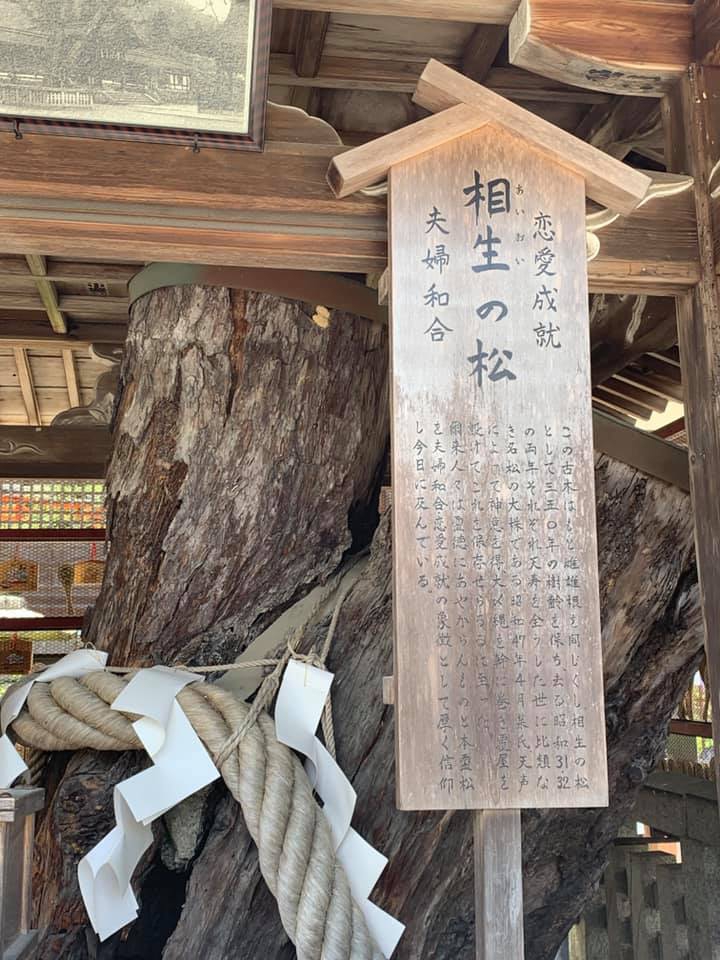 恋愛成就
あいおい
相生の松
夫婦和合
この古木はもと雌雄根を同じくし相生の松
として三五〇年の樹齢を保ち去る昭和31 32
の両年それぞれ天寿を全うした世に比類な
き名松の大株である昭和47年4月某氏天声
によって神意を得大〆縄を幹に巻き霊屋を
設けてこれを保存せらるるに至った
爾来人々は霊徳にあやからんものと本霊松
を夫婦和合恋愛成就の象徴として厚く信仰
し今日に及んでいる。